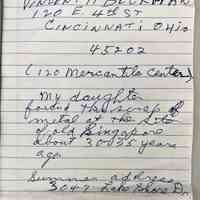 VINCENT H BECKMAN
120 E 4th ST
CINCINNATI OHIO
45202
(120 Mercantile Center)
My daughter
found the scrap of
metal at the site
of old Singapore
about 30-35 years
ago
Summer address
3047 Lake Shore Dr.